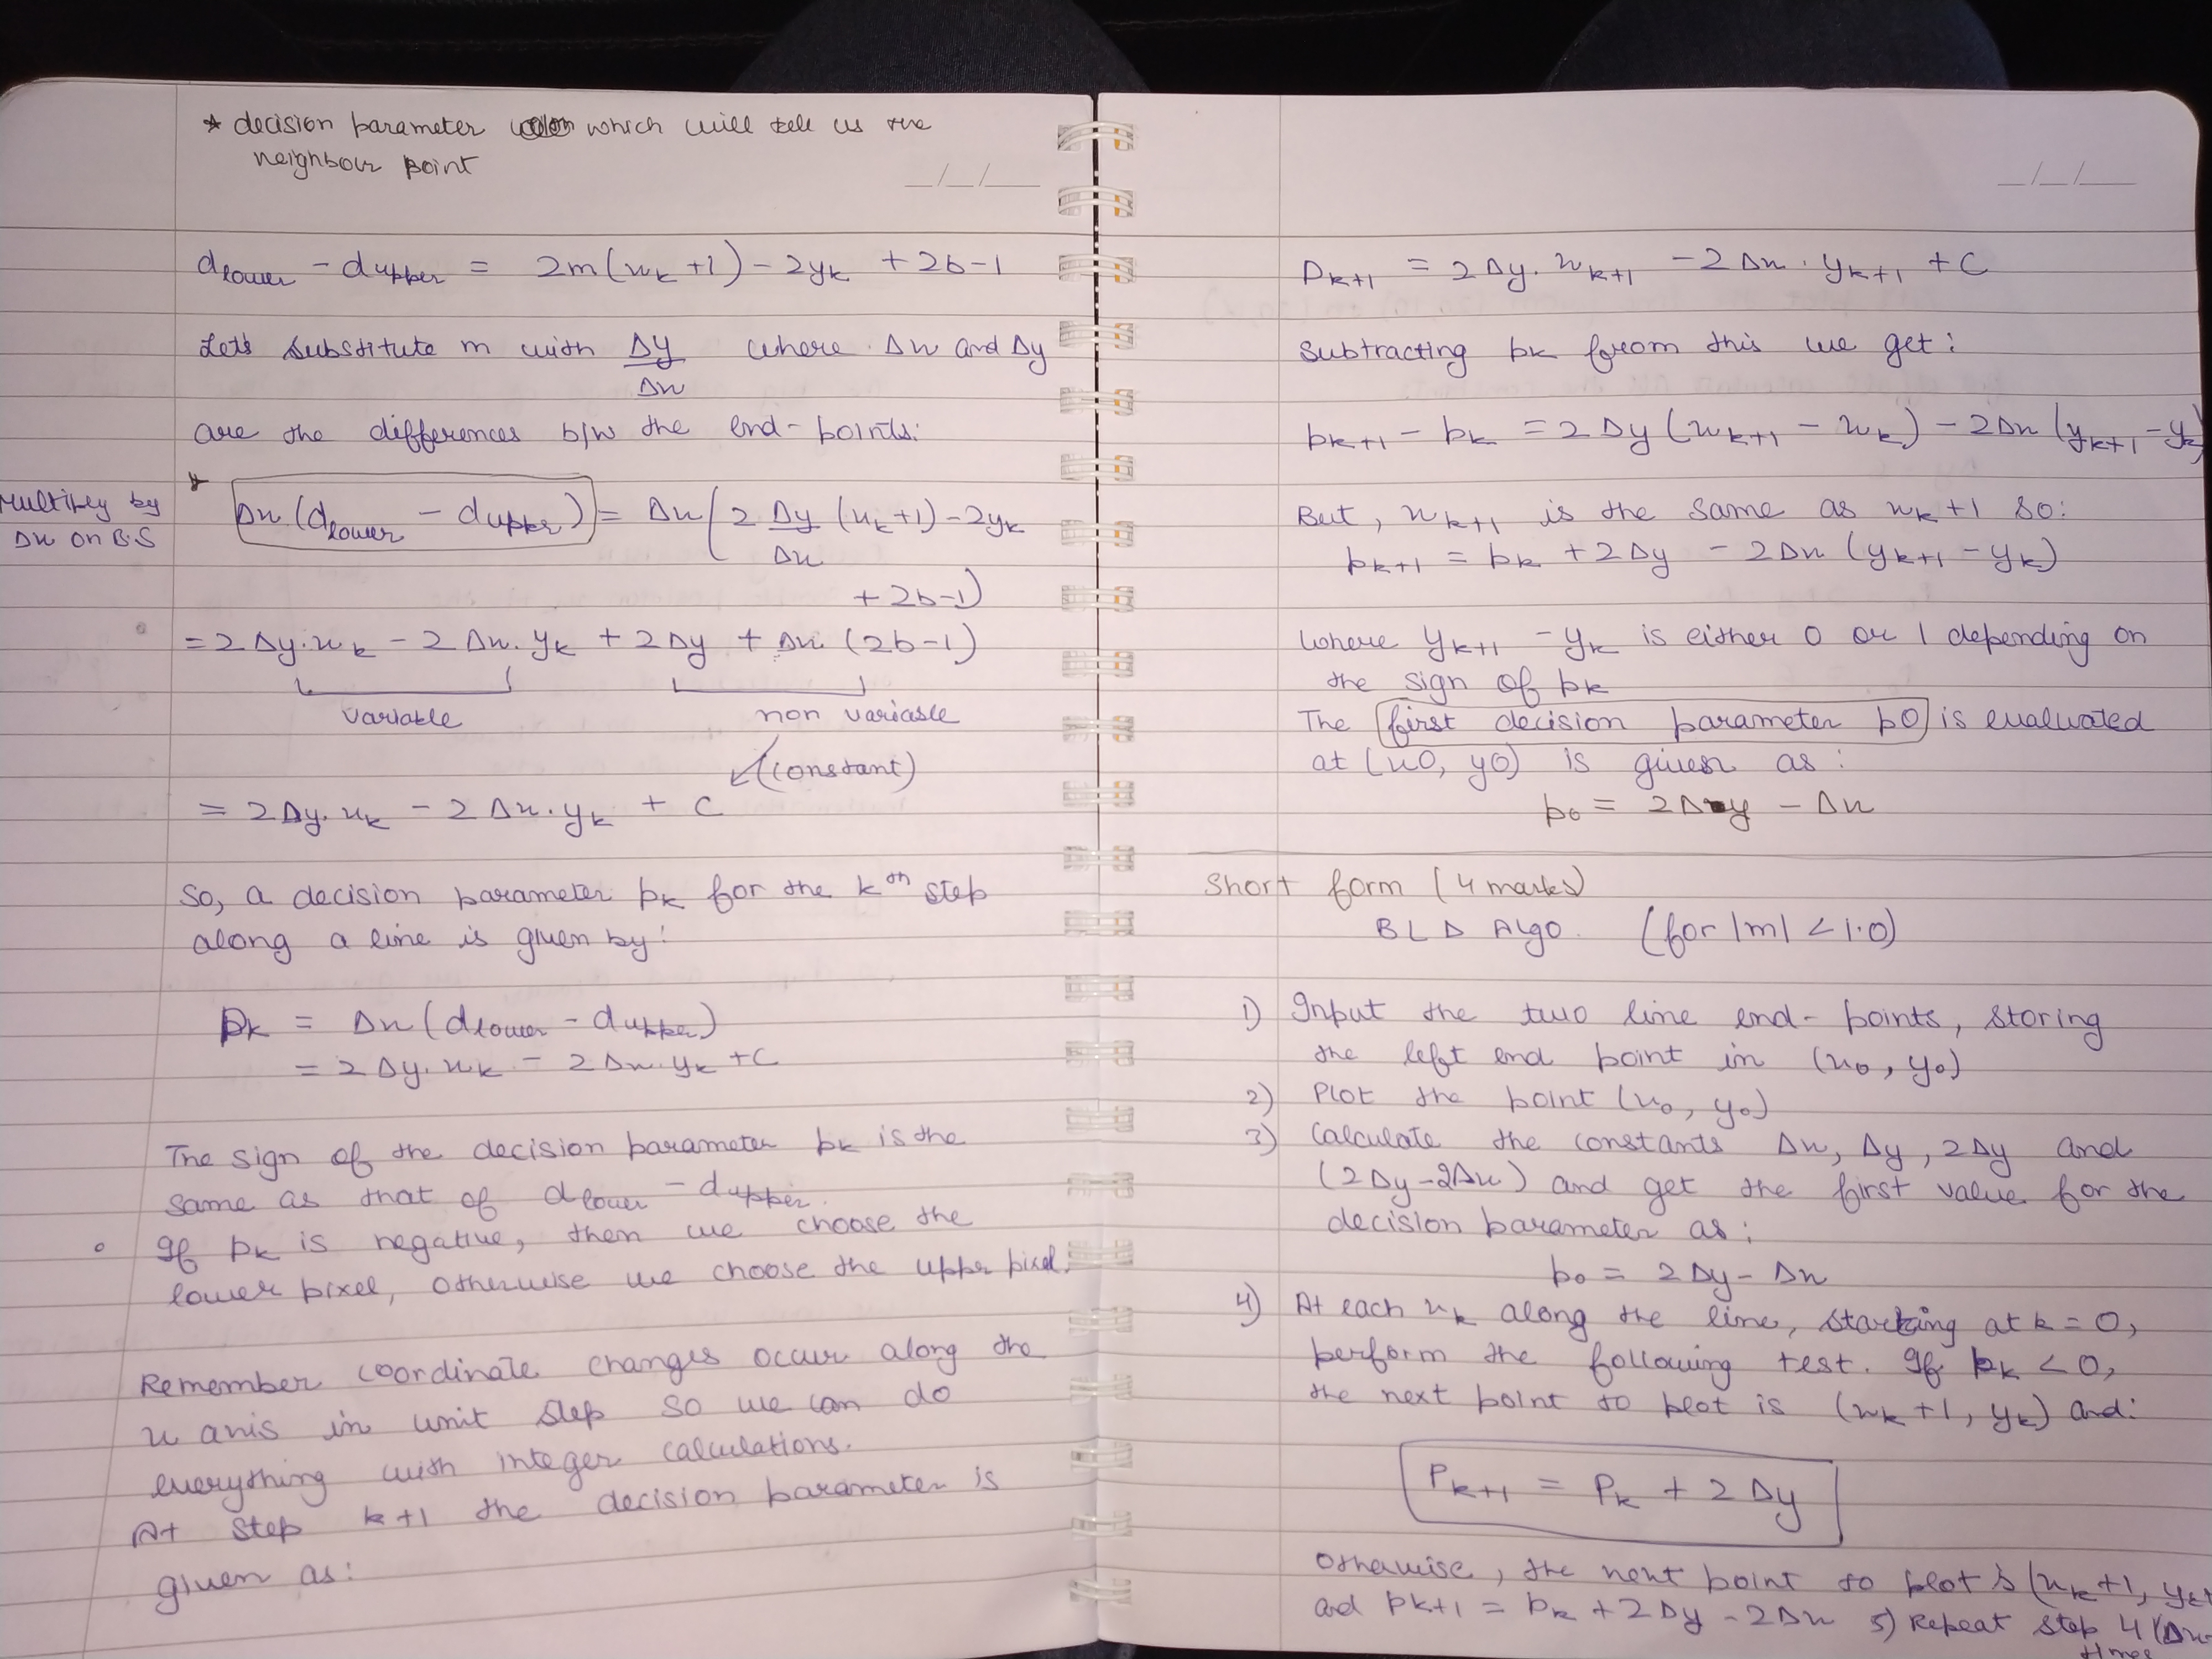 * decision parameter which will tell us the
neighbour point
_/_/__
d_lower - d_upper = 2m(x_k +1) - 2y_k + 2b-1
Lets substitute m with Δy/Δx where Δx and Δy
are the differences b/w the end-points:
Multiply by
Δx on B.S
* Δx(d_lower - d_upper) = Δx(2 Δy/Δx (x_k+1) - 2y_k
+ 2b-1)
= 2Δy.x_k - 2Δx.y_k + 2Δy + Δx (2b-1)
variable non variable
(constant)
= 2Δy.x_k - 2Δx.y_k + C
So, a decision parameter p_k for the k^th step
along a line is given by:
P_k = Δx(d_lower - d_upper)
= 2Δy.x_k - 2Δx.y_k + C
The sign of the decision parameter p_k is the
same as that of d_lower - d_upper.
If p_k is negative, then we choose the
lower pixel, otherwise we choose the upper pixel.
Remember coordinate changes occur along the
x axis in unit step so we can do
everything with integer calculations.
At step k+1 the decision parameter is
given as:
_/_/__
P_k+1 = 2Δy.x_k+1 - 2Δx.y_k+1 + C
Subtracting p_k from this we get:
p_k+1 - p_k = 2Δy(x_k+1 - x_k) - 2Δx(y_k+1 - y_k)
But, x_k+1 is the same as x_k+1 so:
p_k+1 = p_k + 2Δy - 2Δx (y_k+1 - y_k)
where y_k+1 - y_k is either 0 or 1 depending on
the sign of p_k
The first decision parameter p0 is evaluated
at (x0, y0) is given as:
p_0 = 2Δy - Δx
Short form (4 marks)
BLD Algo. (for |m| < 1.0)
1) Input the two line end-points, storing
the left end point in (x_0, y_0)
2) Plot the point (x_0, y_0)
3) Calculate the constants Δx, Δy, 2Δy and
(2Δy-2Δx) and get the first value for the
decision parameter as:
p_0 = 2Δy - Δx
4) At each x_k along the line, starting at k = 0,
perform the following test. If p_k < 0,
the next point to plot is (x_k +1, y_k) and:
P_k+1 = P_k + 2Δy
Otherwise, the next point to plot is (x_k+1, y_k+
and p_k+1 = p_k + 2Δy - 2Δx 5) Repeat step 4 (Δx-
times